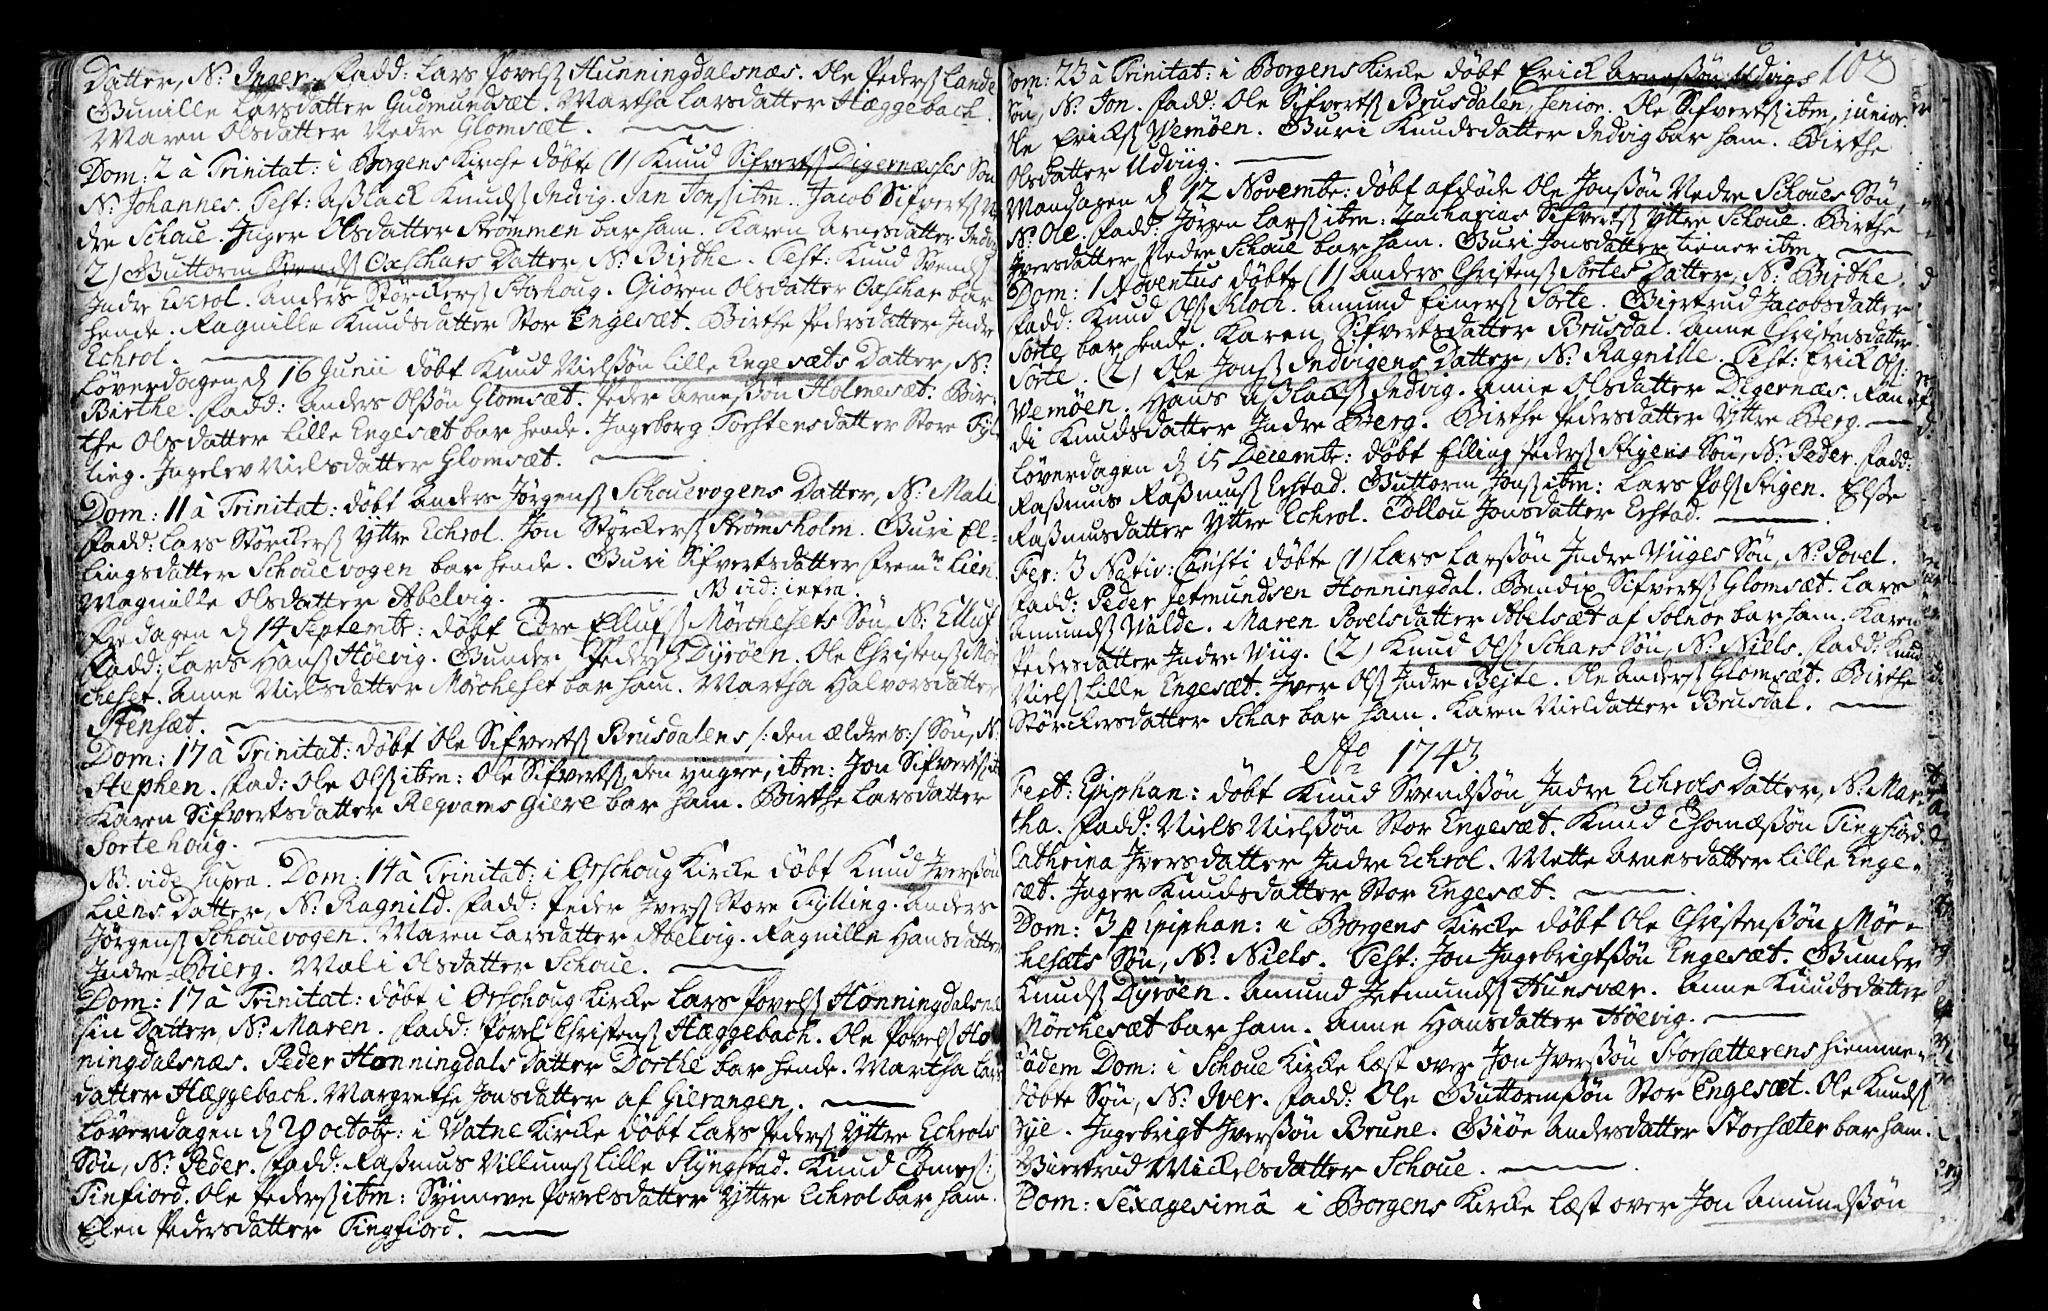 Datter, N: Inger. Fadd: Lars Povelss Hunningdalsnæs. Ole Pederss Lande
Gunille Larsdatter Gudmundsæt. Martha Larsdatter Hæggebach.
Maren Olsdatter Nedre Glomsæt.
Dom: 2 à Trinitat: i Borgens Kirche döbt (1) Knud Sifvertss Digernæses Sön
N: Johannes. Test: Aslack Knudss Indvig. Jan Jonss ibm. Jacob Sifvertss Ne
dre Schoue. Inger Olsdatter Strömmen bar ham. Karen Arnesdatter Indvig
2) Guttorm Svendss Oxschars Datter, N: Birthe. Test: Knud Svendss
Indre Echrol. Anders Störckerss Storhoug. Giören Olsdatter Oxschar bar
hende. Ragnille Knudsdatter Stor Engesæt. Birthe Pedersdatter Indre
Echrol.
Löverdagen d 16 Junii döbt Knud Nielssön Lille Engesæts Datter, N:
Birthe. Fadd: Anders Olssön Glomsæt. Peder Arnessön Holmesæt. Bir-
the Olsdatter Lille Engesæt bar hende. Ingeborg Torstensdatter Store Fyl
ling. Ingelev Nielsdatter Glomsæt.
Dom: 11 à Trinitat: döbt Anders Jörgenss Schouevogens Datter, N: Mali
Fadd: Lars Störckerss Yttre Echrol. Jon Störckerss Strömsholm. Guri El-
lingsdatter Schouevogen bar hende. Guri Sifvertsdatter Fremre Lien.
Magnille Olsdatter Abelvig. NB vid: infra.
Fredagen d 14 Septembr: döbt Tore Ellufss Mörchesets Sön, N: Elluf
Fadd: Lars Hanss Höevig. Gunder Pederss Dyröen. Ole Christenss Mör
cheset. Anne Nielsdatter Mörcheset bar ham. Martha Halvorsdatter
Stensæt.
Dom: 17 à Trinitat: döbt Ole Sifvertss Brusdalens /: den ældres :/ Sön, N:
Stephen. Fad: Ole Olss ibm: Ole Sifvertss, den yngre, ibm: Jon Sifvertss ib
Karen Sifvertsdatter Reqvams Giere bar ham. Birthe Larsdatter
Sortehoug.
NB. vide supra. Dom: 14 à Trinitat: i Orschoug Kirke döbt Knud Iverssön
Liens Datter, N: Ragnild. Fadd: Peder Iverss Store Fylling. Anders
Jörgenss Schouevogen. Maren Larsdatter Abelvig. Ragnille Hansdatter
Indre Bierg. Mali Olsdatter Schoue.
Dom: 17 à Trinitat: döbt i Orschoug Kirke Lars Povelss Honningdalsnæ
sin Datter, N: Maren. Fadd: Povel Christenss Hæggebach. Ole Povelss Hon
ningdalsnæs. Peder Honningdals Datter Dorthe bar hende. Martha Lars
datter Hæggebach. Margrethe Jonsdatter af Gierangen.
Löverdagen d 20 octobr: i Vatne Kirke döbt Lars Pederss Yttre Echrols
Sön, N: Peder. Fadd: Rasmus Villumss Lille Slyngstad. Knud Tomess:
Tinfiord. Ole Pederss ibm: Synneve Povelsdatter Yttre Echrol bar ham.
Elen Pedersdatter Tingfiord.
103
Dom: 23 à Trinitat: i Borgens Kirke döbt Erick Arnessön Udvigs
Sön, N: Jon. Fadd: Ole Sifvertss Brusdalen, senior. Ole Sifvertss ibm, junior
Ole Erickss Vemöen. Guri Knudsdatter Indvig bar ham. Birthe
Olsdatter Udviig.
Mandagen d 12 Novembr: döbt afdöde Ole Jonssön Nedre Schoues Sön,
N: Ole. Fadd: Jörgen Larss ibm: Zacharias Sifvertss Yttre Schoue. Birthe
Iversdatter Nedre Schoue bar ham. Guri Jonsdatter tiener ibm.
Dom: 1 Adventus döbte (1) Anders Christenss Sortes Datter, N: Birthe.
Fadd: Knud Olss Kloch. Amund Einerss Sorte. Giertrud Jacobsdatter
Sorte bar hende. Karen Sifvertsdatter Brusdal. Anne Christensdatter
Sorte. (2) Ole Jonss Indvigens Datter, N: Ragnille. Test: Erick Olss:
Vemöen. Hans Aslackss Indvig. Anne Olsdatter Digernæs. Ran
di Knudsdatter Indre Berg. Birthe Pedersdatter Yttre Berg.
Löverdagen d 15 Decembr: döbt Elling Pederss Stigens Sön, N: Peder. Fadd:
Rasmus Rasmuss Erstad. Guttorm Jonss ibm: Lars Polss Stigen. Else
Rasmusdatter Yttre Echrol. Tollou Jonsdatter Erstad.
Fer: 3 Nativ: Christi döbte (1) Lars Larssön Indre Viiges Sön, N: Povel.
Fadd: Peder Jetmundsen Honningdal. Bendix Sifvertss Glomsæt. Lars
Amundss Valde. Maren Povelsdatter Abelsæt af Solnor bar ham. Karen
Pedersdatter Indre Viig. (2) Knud Olss Schars Sön, N: Niels. Fadd: Knud
Nielss Lille Engesæt. Iver Olss Indre Bejte. Ole Anderss Glomsæt. Birthe
Störckersdatter Schar bar ham. Karen Nieldatter Brusdal.
Ao 1743
Fest: Epiphan: döbt Knud Svendssön Indre Echrols Datter, N: Mar-
tha. Fadd: Niels Nielssön Stor Engesæt. Knud Thomæssön Tingfiord.
Cathrina Iversdatter Indre Echrol. Mette Arnesdatter Lille Enge-
sæt. Inger Knudsdatter Stor Engesæt.
Dom: 3 p Epiphan: i Borgens Kirke döbt Ole Christenssön Mör-
chesæts Sön, N: Niels. Test: Jon Ingebrigtssön Engesæt. Gunder
Knudss Dyröen. Amund Jetmundss Hunsvær. Anne Knudsdatter
Mörchesæt bar ham. Anne Hansdatter Höevig.
Eâdem Dom: i Schoue Kirke læst over Jon Iverssön Storsætterens hiemme-
döbte Sön, N: Iver. Fadd: Ole Guttormssön Stor Engesæt. Ole Knudss
Rye. Ingebrigt Iverssön Brune. Giöe Andersdatter Storsæter bar ham.
Giertrud Mickelsdatter Schoue.
Dom: Sexagesimâ i Borgens Kirke læst over Jon Amundssön